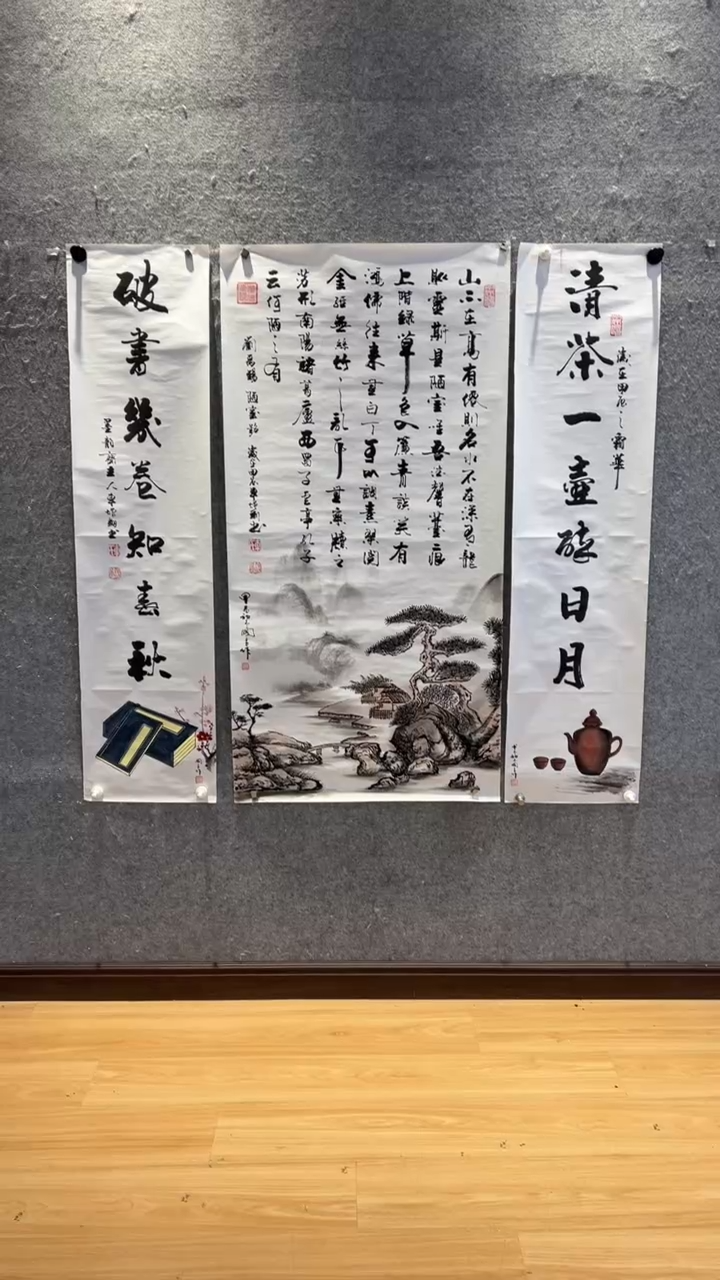 清茶一壺醉日月
歲在甲辰之
山不在高有僊則名水不在深有龍
則靈斯是陋室惟吾德馨苔痕
上階綠草色入簾青談笑有
鴻儒往來無白丁可以調素琴閱
金經無絲竹之亂耳無案牘之
勞形南陽諸葛廬西蜀子雲亭孔子
云何陋之有
劉禹錫 陋室銘 歲在甲辰 書
破書幾卷知春秋
墨韵齋主人 書